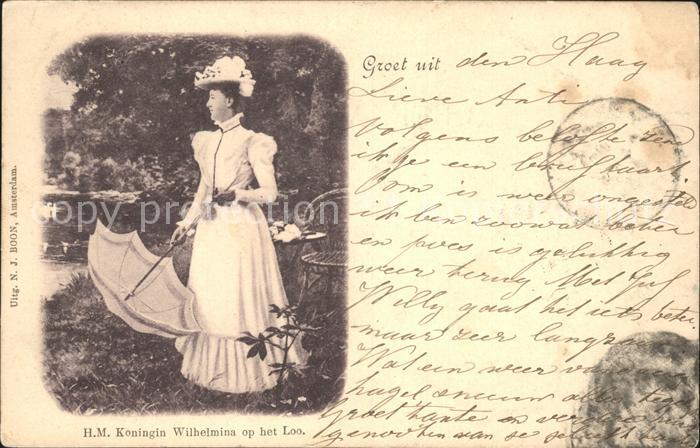 Groet uit den Haag
Lieve Anti
Volgens belofte zend
ik je een briefkaart.
Om is weer ongesteld
ik ben zoowat beter
en poes is gelukkig
weer terug. Met Juf
Willy gaat het iets beter
maar zeer langzaam
Wat een weer van
hagel sneeuw alles
Groet tante en
genooten van je
H.M. Koningin Wilhelmina op het Loo.
Uitg. N. J. BOON, Amsterdam.